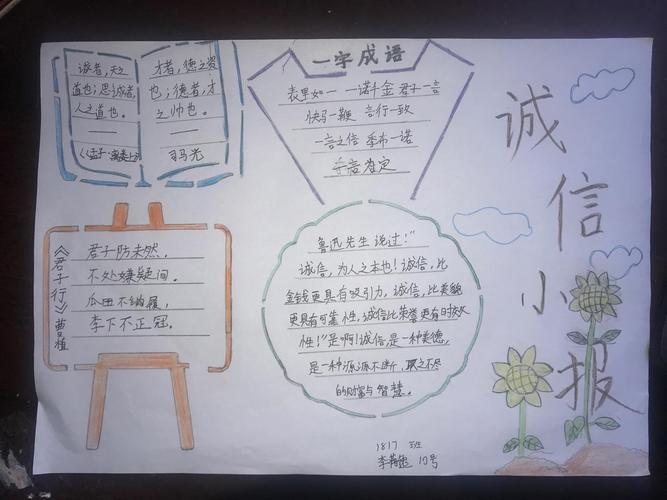 诚信小报
诚者，天之
道也；思诚者，
人之道也。
——
《孟子·离娄上》
才者，德之资
也；德者，才
之帅也。
——
司马光
一字成语
表里如一 一诺千金 君子一言
快马一鞭 言行一致
一言之信 季布一诺
《君子行》曹植
君子防未然，
不处嫌疑间。
瓜田不纳履，
李下不正冠。
鲁迅先生说过！“
诚信，为人之本也！诚信，比
金钱更具有吸引力，诚信，比美貌
更具有可靠性，诚信比荣誉更有时效
性！”是啊！诚信是一种美德，
是一种源源不断，取之不尽
的财富与智慧。
1817 班
李 10号